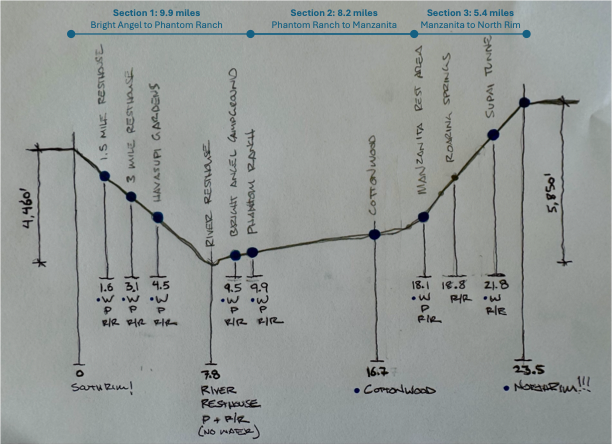 Section 1: 9.9 miles
Bright Angel to Phantom Ranch
Section 2: 8.2 miles
Phantom Ranch to Manzanita
Section 3: 5.4 miles
Manzanita to North Rim
1.5 MILE RESTHOUSE
3 MILE RESTHOUSE
HAVASUPI GARDENS
RIVER RESTHOUSE
BRIGHT ANGEL CAMPGROUND
PHANTOM RANCH
COTTONWOOD
MANZANITA REST AREA
ROARING SPRINGS
SUPAI TUNNEL
4,460'
5,850'
1.6
• W
P
R/R
3.1
• W
P
R/R
4.5
• W
P
R/R
9.5
• W
P
R/R
9.9
• W
P
R/R
18.1
• W
P
R/R
18.8
R/R
21.8
• W
R/R
0
SOUTH RIM!
7.8
RIVER
RESTHOUSE
P + R/R
(NO WATER)
16.7
• COTTONWOOD
23.5
• NORTH RIM!!!